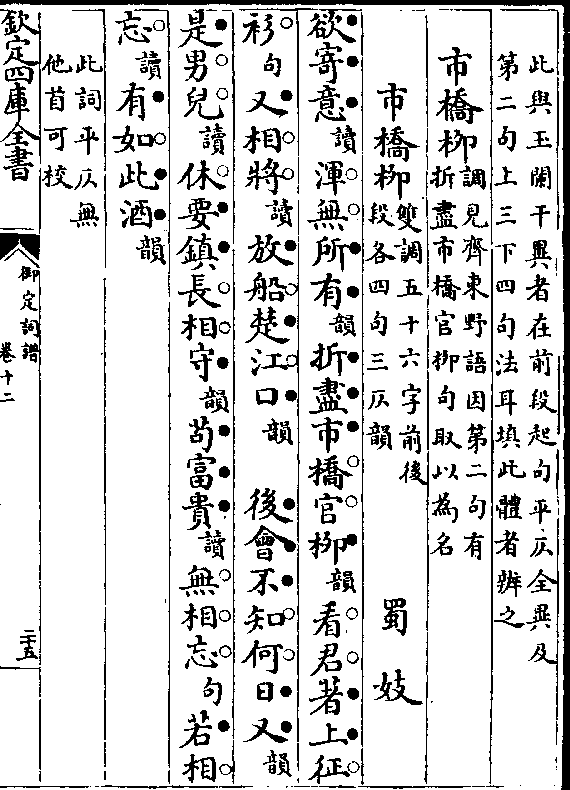 此與玉闌干異者在前段起句平仄全異及
第二句上三下四句法耳填此體者辨之
市橋柳
調見齊東野語因第二句有
折盡市橋官柳句取以為名
市橋柳
雙調五十六字前後
段各四句三仄韻
蜀妓
欲寄意讀渾無所有韻折盡市橋官柳韻看君著上征
衫句又相將讀放船楚江口韻 後會不知何日又韻
是男兒讀休要鎮長相守韻苟富貴讀無相忘句若相
忘讀有如此酒韻
此詞平仄無
他首可校
欽定四庫全書
御定詞譜
卷十二
二十五